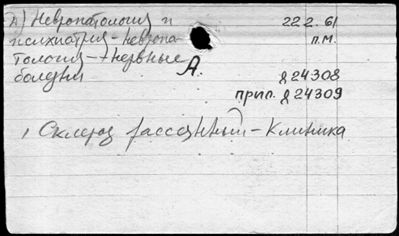 А) Невропатология и
психиатрия - невропа-
тология → нервные
болезни
А.
22 2. 61
п.м.
д 24308
прип. д 24309
1 Склероз рассеянный - Клиника